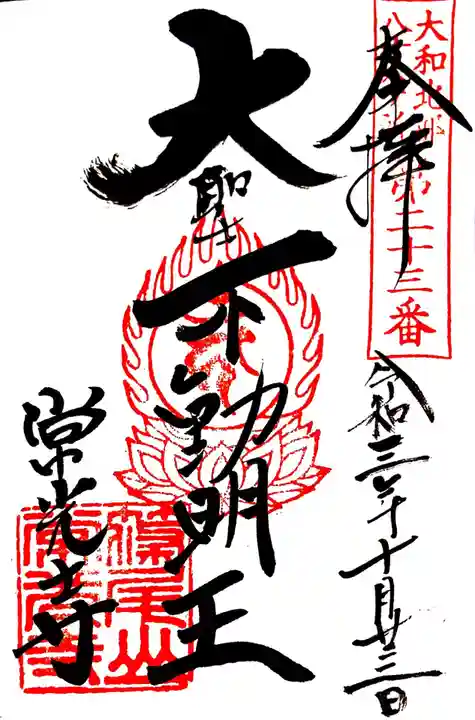 大和北部
八十八ヶ所第二十三番
奉拝
令和三年十月廿三日
大聖不動明王
常光寺